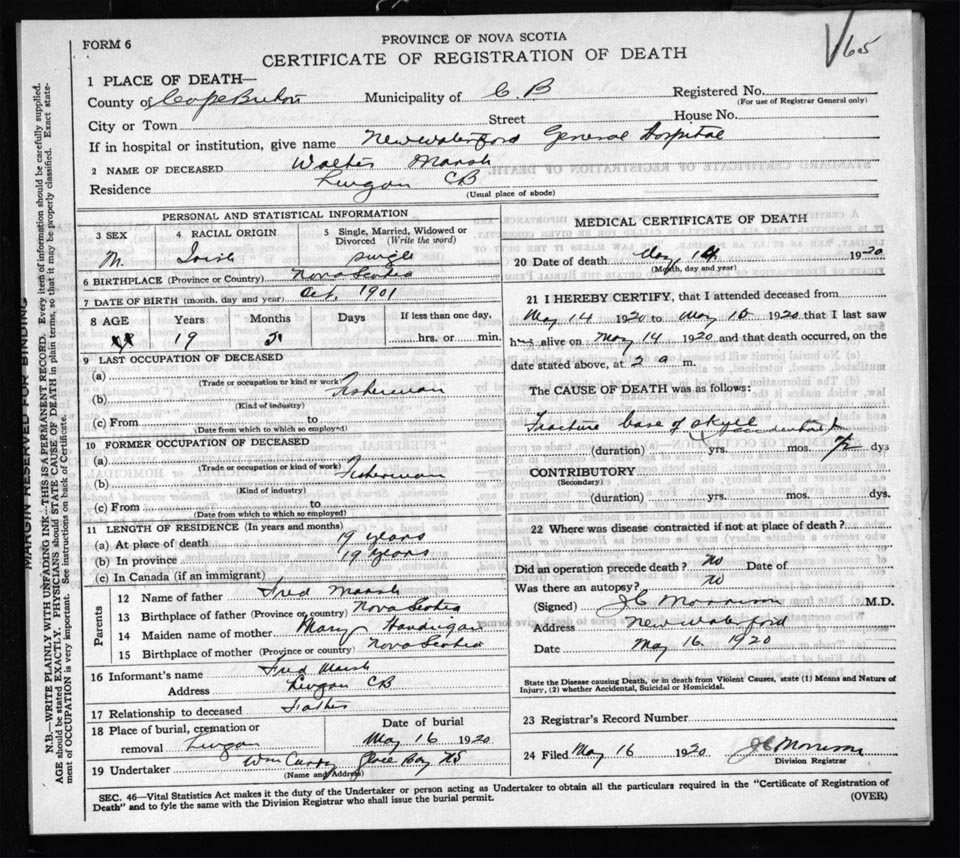 FORM 6
PROVINCE OF NOVA SCOTIA
CERTIFICATE OF REGISTRATION OF DEATH
165
1 PLACE OF DEATH—
County of Cape Breton Municipality of C. B Registered No.
(For use of Registrar General only)
City or Town Street House No.
If in hospital or institution, give name New Waterford General Hospital
2 NAME OF DECEASED Walter Marsh
Residence Lingan CB
(Usual place of abode)
PERSONAL AND STATISTICAL INFORMATION
3 SEX 4 RACIAL ORIGIN 5 Single, Married, Widowed or Divorced (Write the word)
M. Irish single
6 BIRTHPLACE (Province or Country) Nova Scotia
7 DATE OF BIRTH (month, day and year) Oct, 1901
8 AGE Years Months Days If less than one day,
19 hrs. or min.
9 LAST OCCUPATION OF DECEASED
(a) Fisherman
(Trade or occupation or kind or work)
(b)
(Kind of industry)
(c) From to
(Date from which to which so employed)
10 FORMER OCCUPATION OF DECEASED
(a) Fisherman
(Trade or occupation or kind of work)
(b)
(Kind of industry)
(c) From to
(Date from which to which so employed)
11 LENGTH OF RESIDENCE (In years and months)
(a) At place of death 19 years
(b) In province 19 years
(c) In Canada (if an immigrant)
Parents
12 Name of father Fred Marsh
13 Birthplace of father (Province or country) Nova Scotia
14 Maiden name of mother Mary Handrigan
15 Birthplace of mother (Province or country) Nova Scotia
16 Informant's name Fred Marsh
Address Lingan CB
17 Relationship to deceased Father
18 Place of burial, cremation or removal Lingan Date of burial May 16 1920
19 Undertaker Wm Curry Glace Bay NS
(Name and Address)
MEDICAL CERTIFICATE OF DEATH
20 Date of death May 14 1920
(Month, day and year)
21 I HEREBY CERTIFY, that I attended deceased from
May 14 1920 to May 1920 that I last saw
him alive on May 14 1920 and that death occurred, on the
date stated above, at 2 a m.
The CAUSE OF DEATH was as follows:
Fracture base of skull
(duration) yrs. mos. 1/2 dys
CONTRIBUTORY
(Secondary)
(duration) yrs. mos. dys.
22 Where was disease contracted if not at place of death?
Did an operation precede death? no Date of
Was there an autopsy? no
(Signed) JC Morrison M.D.
Address New Waterford
Date May 16 1920
State the Disease causing Death, or in death from Violent Causes, state (1) Means and Nature of
Injury, (2) whether Accidental, Suicidal or Homicidal.
23 Registrar's Record Number
24 Filed May 16 1920 JC Morrison
Division Registrar
SEC. 46—Vital Statistics Act makes it the duty of the Undertaker or person acting as Undertaker to obtain all the particulars required in the "Certificate of Registration of
Death" and to fyle the same with the Division Registrar who shall issue the burial permit. (OVER)
MARGIN RESERVED FOR BINDING
N.B.—WRITE PLAINLY WITH UNFADING INK—THIS IS A PERMANENT RECORD. Every item of information should be carefully supplied.
AGE should be stated EXACTLY. PHYSICIANS should STATE CAUSE OF DEATH in plain terms, so that it may be properly classified. Exact state-
ment of OCCUPATION is very important. See instructions on back of Certificate.